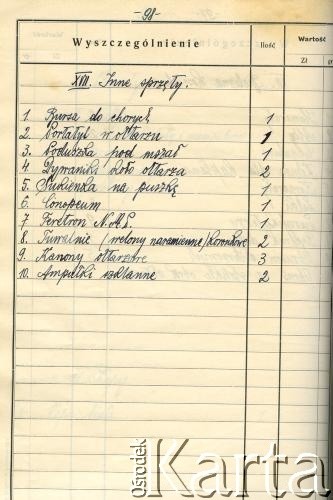 - 98 -
Wyszczególnienie Ilość Wartość
Zł gr
XVII. Inne sprzęty.
1. Bursa do chorych 1
2. Portatyl w ołtarzu 1
3. Poduszka pod mszał 1
4. Dywaniki koło ołtarza 2
5. Sukienka na puszkę 1
6. Conopeum 1
7. Feretron N.M.P. 1
8. Tuwalnie /welony naramienne/ koronkowe 2
9. Kanony ołtarzowe 3
10. Ampułki szklanne 2
Ośrodek
Karta